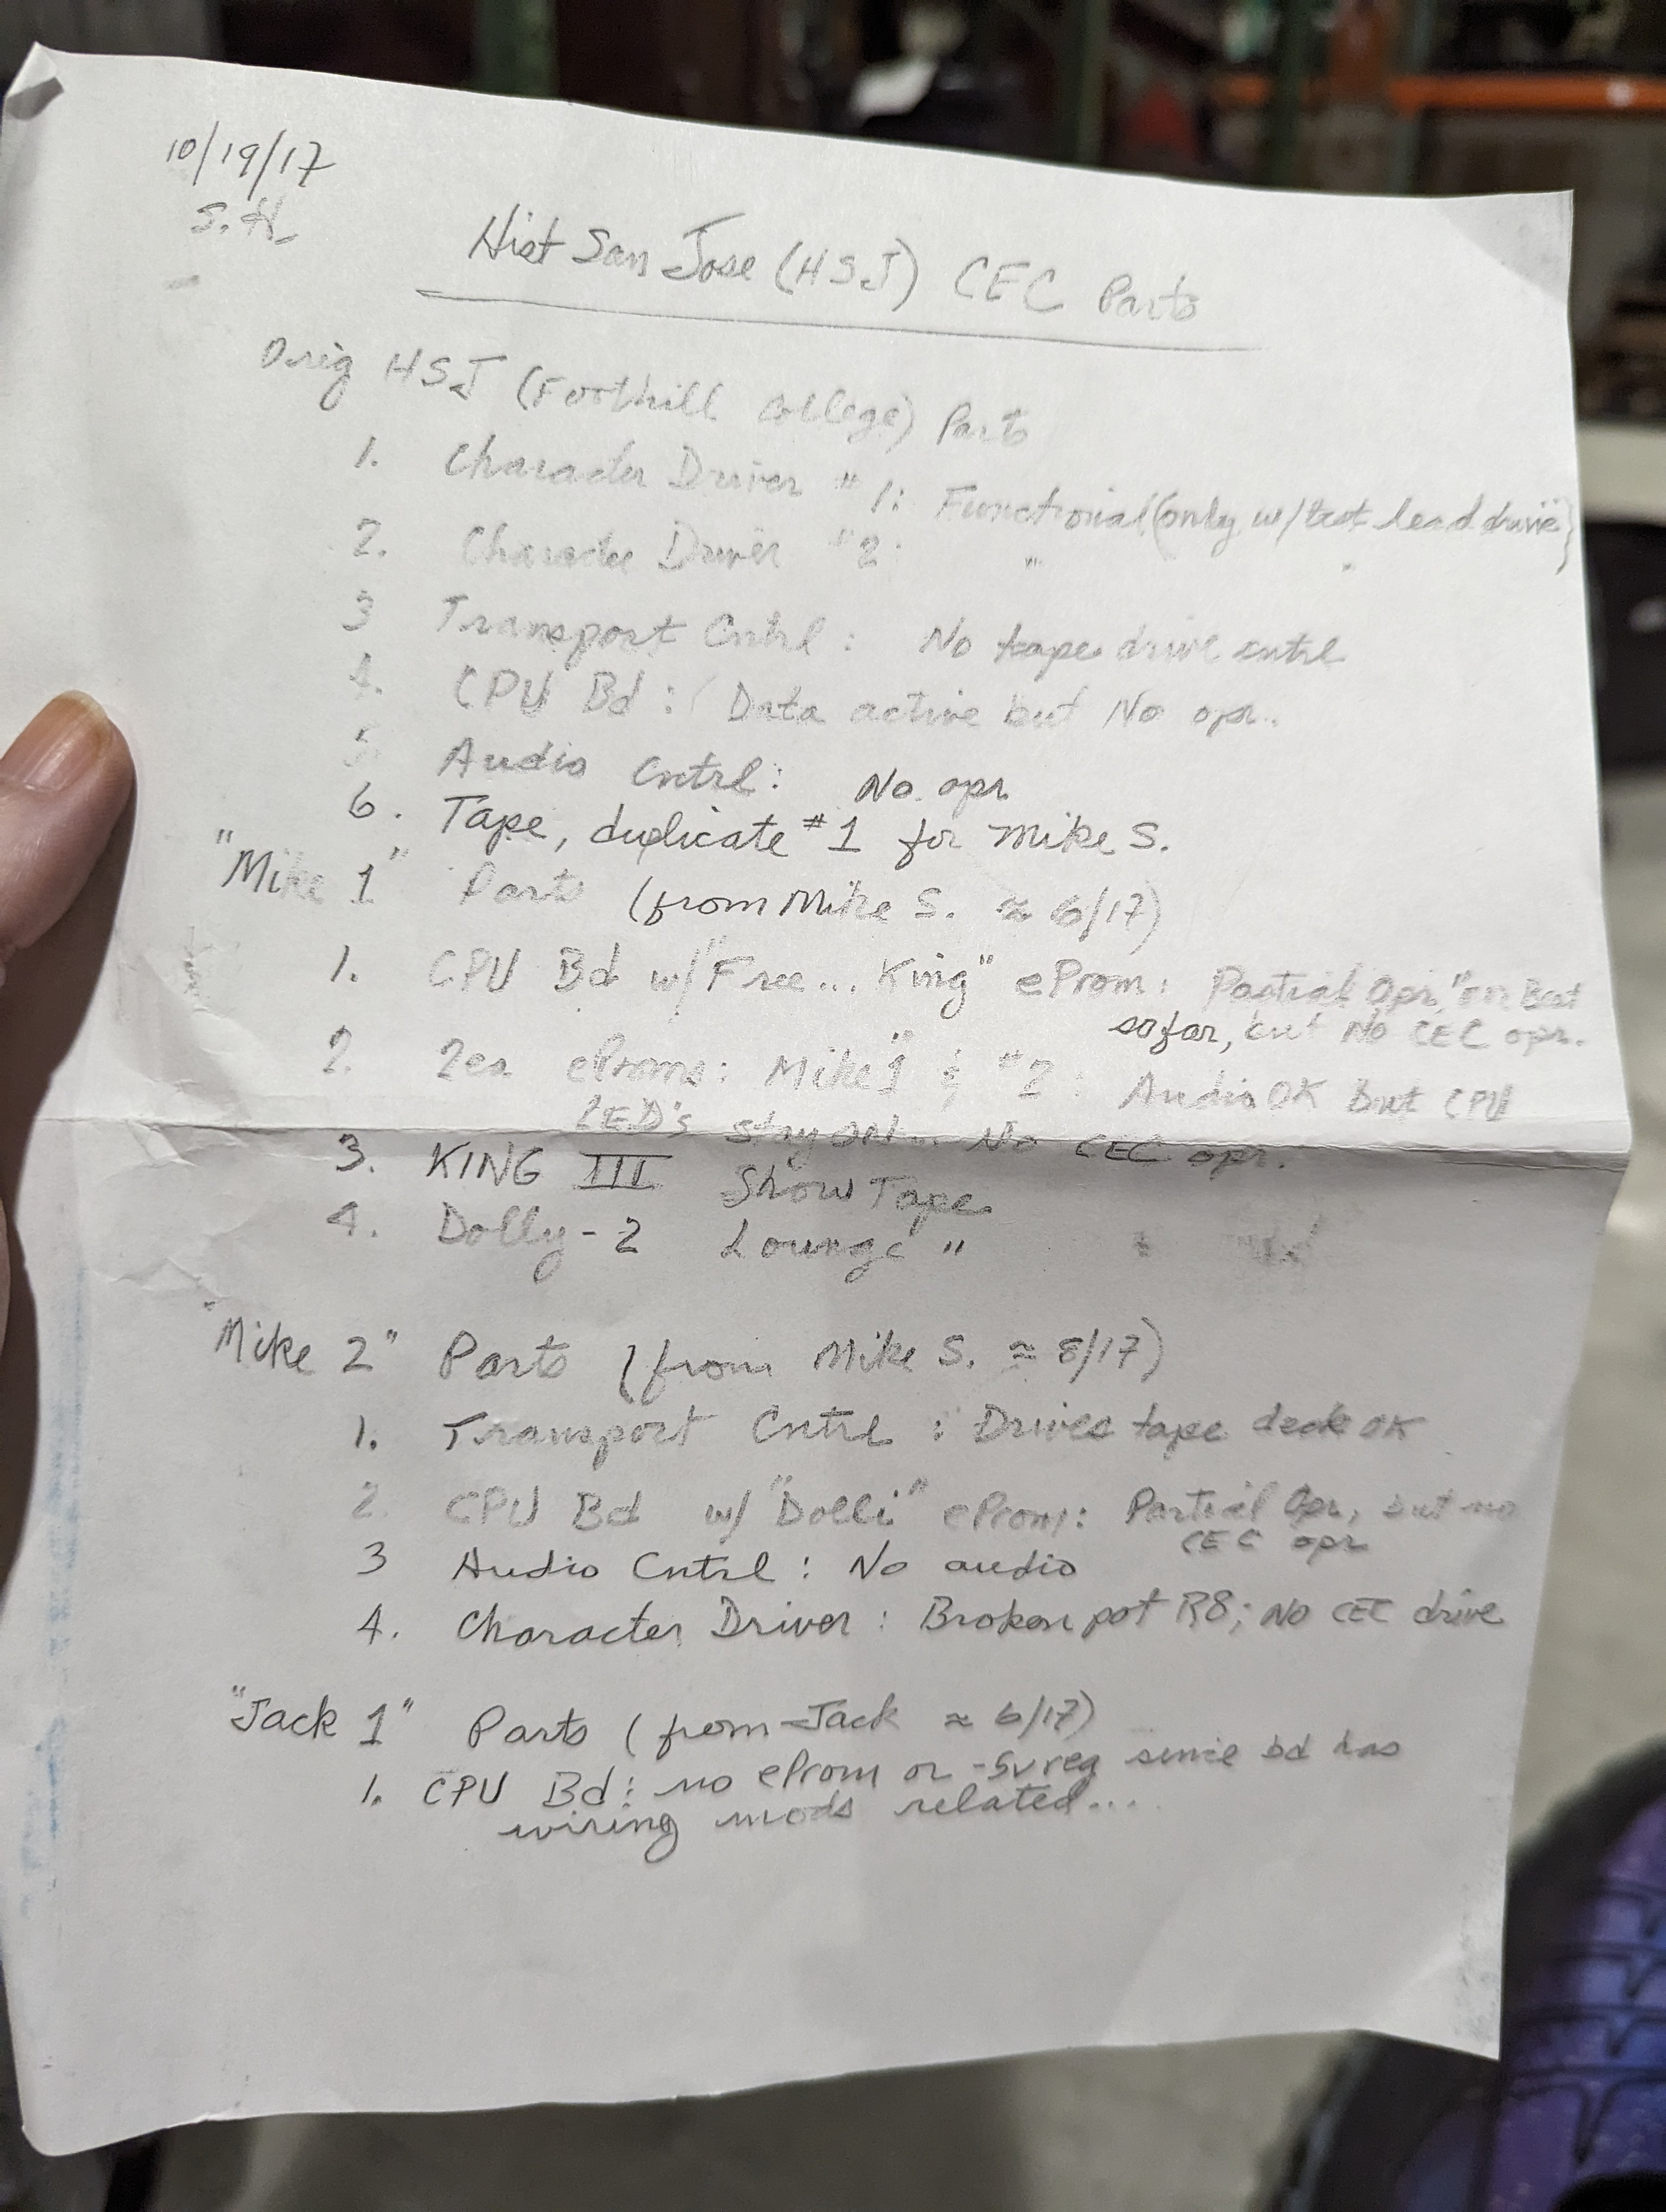 10/19/17
S.H.
Hist San Jose (HSJ) CEC Parts
Orig HSJ (Foothill College) Parts
1. Character Driver #1: Functional (only w/test lead drive)
2. Character Driver #2: " "
3 Transport Cntrl: No tape drive cntrl
4. CPU Bd: Data active but No opr.
5. Audio Cntrl: No opr
6. Tape, duplicate #1 for Mike S.
"Mike 1" Parts (from Mike S. ≈ 6/17)
1. CPU Bd w/"Free... King" eProm: Partial Opr, Best
so far, but No CEC opr.
2. 2ea eProms: Mike 1 & #2: Audio OK but CPU
LED's stay on... No CEC opr.
3. KING III Show Tape
4. Dolly-2 Lounge "
"Mike 2" Parts (from Mike S. ≈ 8/17)
1. Transport Cntrl: Drives tape deck OK
2. CPU Bd w/"Dolli" eProm: Partial Opr, but no
CEC opr
3 Audio Cntrl: No audio
4. Character Driver: Broken pot R8; No CEC drive
"Jack 1" Parts (from Jack ≈ 6/17)
1. CPU Bd: no eProm or -5v reg since bd has
wiring mods related...